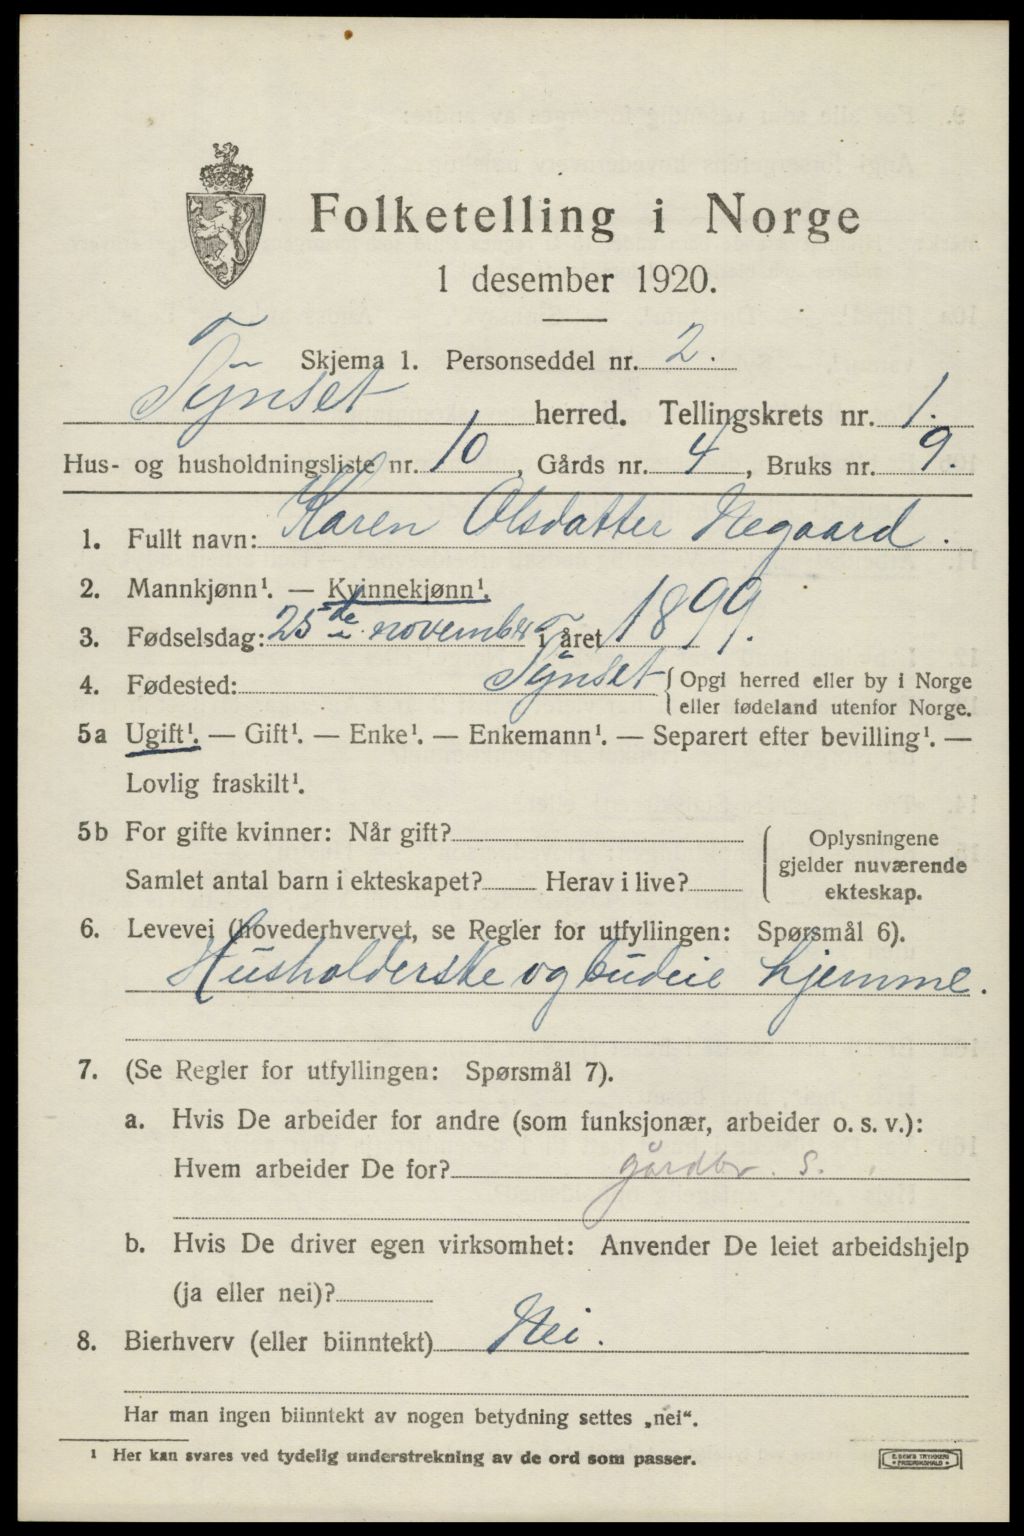 Folketelling i Norge
1 desember 1920.
Skjema 1. Personseddel nr. 2.
Tynset herred. Tellingskrets nr. 1.
Hus- og husholdningsliste nr. 10, Gårds nr. 4, Bruks nr. 9.
1. Fullt navn: Karen Olsdatter Negaard.
2. Mannkjønn¹. — Kvinnekjønn¹.
3. Fødselsdag: 25de november i året 1899.
4. Fødested: Tynset {Opgi herred eller by i Norge
eller fødeland utenfor Norge.
5a Ugift¹. — Gift¹. — Enke¹. — Enkemann¹. — Separert efter bevilling¹. —
Lovlig fraskilt¹.
5b For gifte kvinner: Når gift?
Samlet antal barn i ekteskapet? Herav i live?
Oplysningene
gjelder nuværende
ekteskap.
6. Levevei (hovederhvervet, se Regler for utfyllingen: Spørsmål 6).
Husholderske og budeie hjemme.
7. (Se Regler for utfyllingen: Spørsmål 7).
a. Hvis De arbeider for andre (som funksjonær, arbeider o. s. v.):
Hvem arbeider De for? gårdbr. S.
b. Hvis De driver egen virksomhet: Anvender De leiet arbeidshjelp
(ja eller nei)?
8. Bierhverv (eller biinntekt) Nei.
Har man ingen biinntekt av nogen betydning settes „nei“.
¹ Her kan svares ved tydelig understrekning av de ord som passer.